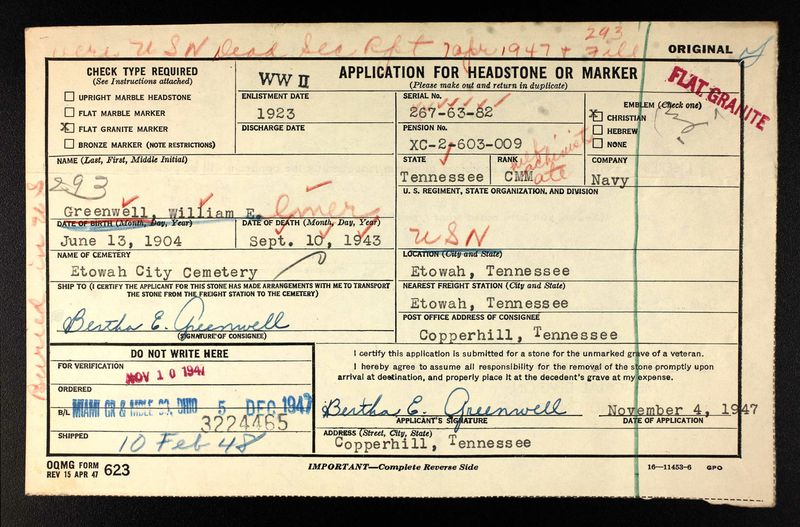 were USN Dead Sea Rpt 7 apr 1947 + File
293
ORIGINAL
CHECK TYPE REQUIRED
(See Instructions attached)
UPRIGHT MARBLE HEADSTONE
FLAT MARBLE MARKER
X FLAT GRANITE MARKER
BRONZE MARKER (NOTE RESTRICTIONS)
WW II
APPLICATION FOR HEADSTONE OR MARKER
(Please make out and return in duplicate)
FLAT GRANITE
ENLISTMENT DATE
1923
DISCHARGE DATE
SERIAL NO.
267-63-82
PENSION NO.
XC-2-603-009
EMBLEM (Check one)
X CHRISTIAN
HEBREW
NONE
NAME (Last, First, Middle Initial)
293
Greenwell, William E. Omer
STATE
Tennessee
RANK
CMM
machinist
mate
COMPANY
Navy
U. S. REGIMENT, STATE ORGANIZATION, AND DIVISION
USN
DATE OF BIRTH (Month, Day, Year)
June 13, 1904
DATE OF DEATH (Month, Day, Year)
Sept. 10, 1943
NAME OF CEMETERY
Etowah City Cemetery
LOCATION (City and State)
Etowah, Tennessee
SHIP TO (I CERTIFY THE APPLICANT FOR THIS STONE HAS MADE ARRANGEMENTS WITH ME TO TRANSPORT
THE STONE FROM THE FREIGHT STATION TO THE CEMETERY)
Bertha E. Greenwell
(SIGNATURE OF CONSIGNEE)
NEAREST FREIGHT STATION (City and State)
Etowah, Tennessee
POST OFFICE ADDRESS OF CONSIGNEE
Copperhill, Tennessee
Buried in U S
DO NOT WRITE HERE
FOR VERIFICATION
NOV 10 1947
ORDERED
MIAMI GR & MBLE CO. OHIO 5 DEC 1947
B/L
3224465
SHIPPED
10 Feb 48
I certify this application is submitted for a stone for the unmarked grave of a veteran.
I hereby agree to assume all responsibility for the removal of the stone promptly upon
arrival at destination, and properly place it at the decedent's grave at my expense.
Bertha E. Greenwell
APPLICANT'S SIGNATURE
November 4, 1947
DATE OF APPLICATION
ADDRESS (Street, City, State)
Copperhill, Tennessee
OQMG FORM
REV 15 APR 47 623
IMPORTANT—Complete Reverse Side
16—11453-6 GPO